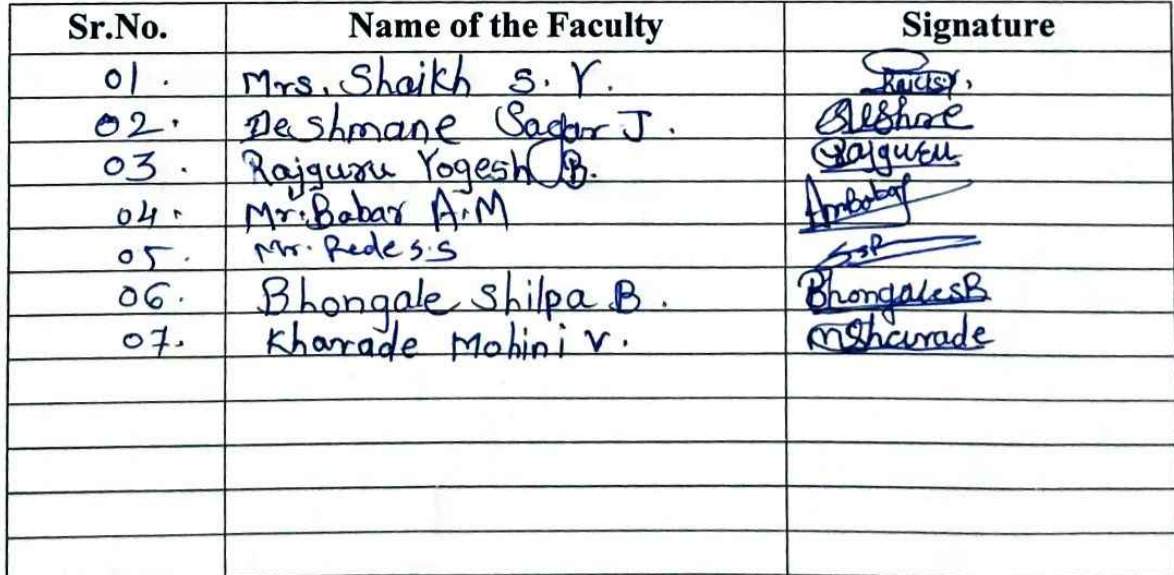 Sr.No. Name of the Faculty Signature
01. Mrs. Shaikh S. Y.
02. Deshmane Sagar J.
03. Rajguru Yogesh B. Rajguru
04. Mr. Babar A.M AmBabar
05. Mr. Rede S.S SSR
06. Bhongale Shilpa B. BhongalesB
07. Kharade Mohini V.